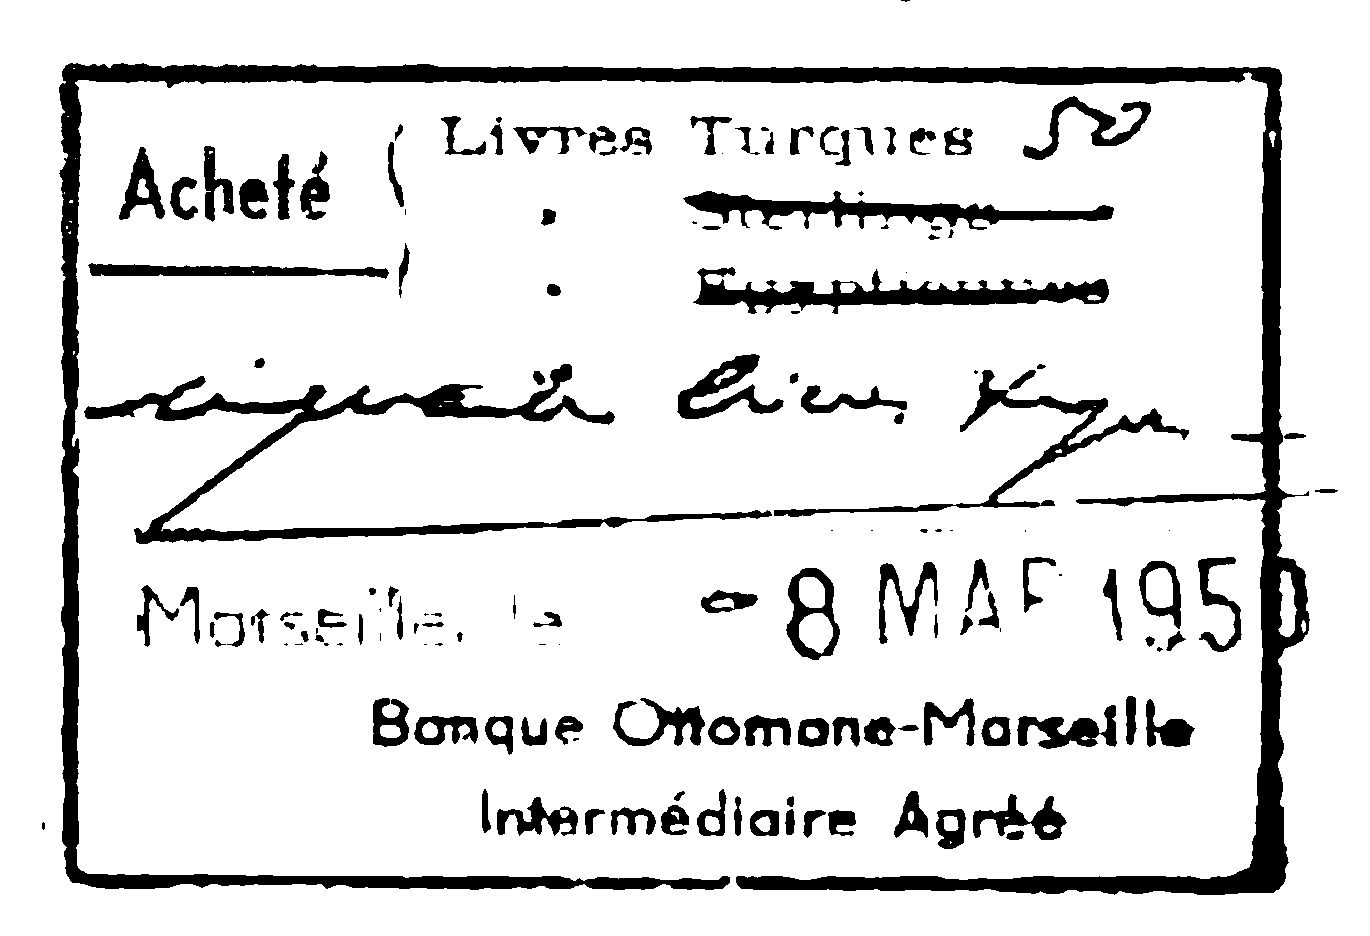 Acheté
Livres Turques 50
" Sterlings
" Egyptiennes
cinquante livres turques
Marseille, le - 8 MAR 1950
Banque Ottomane-Marseille
Intermédiaire Agréé